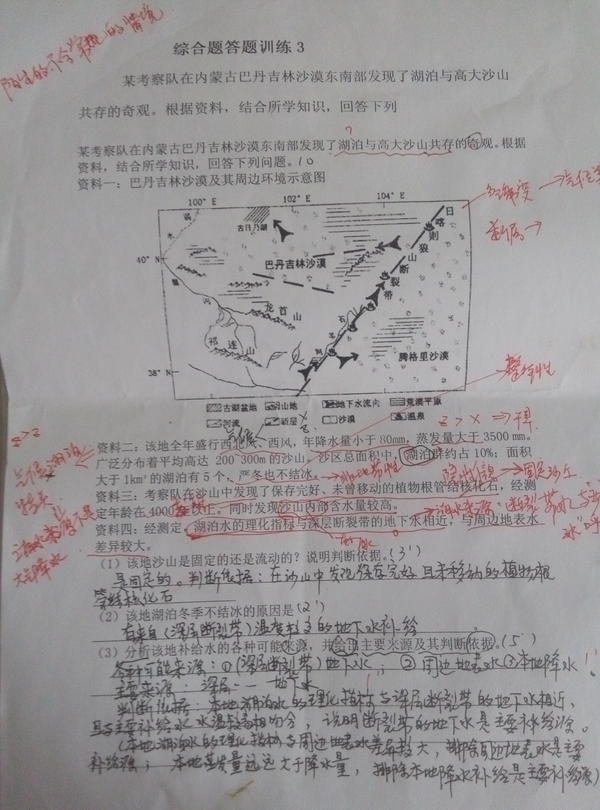 陌生的不合常规的情境
综合题答题训练3
某考察队在内蒙古巴丹吉林沙漠东南部发现了湖泊与高大沙山
共存的奇观。根据资料，结合所学知识，回答下列
某考察队在内蒙古巴丹吉林沙漠东南部发现了湖泊与高大沙山共存的奇观。根据
资料，结合所学知识，回答下列问题。10
资料一：巴丹吉林沙漠及其周边环境示意图
100°E 102°E 104°E
古日乃湖
日
喀
则
狼
山
断
裂
带
40°N
巴丹吉林沙漠
龙首山
祁连山
38°N
腾格里沙漠
整体性
古湖盆地 山地 地下水流向 荒漠平原
河流 断层 沙漠 温泉
资料二：该地全年盛行西北风、西风，年降水量小于80mm，蒸发量大于3500mm。
广泛分布着平均高达200~300m的沙山。沙区总面积中，湖泊群约占10%；面积
大于1km²的湖泊有5个，严冬也不结冰。
资料三：考察队在沙山中发现了保存完好、未曾移动的植物根管结核化石，经测
定年龄在4000年以上。同时发现沙山内部含水量较高。
资料四：经测定，湖泊水的理化指标与深层断裂带的地下水相近，与周边地表水
差异较大。
（1）该地沙山是固定的还是流动的？说明判断依据。（3'）
是固定的。判断依据：在沙山中发现保存完好且未移动的植物根
管结核化石
（2）该地湖泊冬季不结冰的原因是（2'）
有来自（深层断裂带）温度较高的地下水补给
（3）分析该地补给水的各种可能来源，并给出主要来源及其判断依据。（5'）
各种可能来源：①（深层断裂带）地下水；②周边地表水③本地降水
主要来源：深层——地下水
判断依据：本地湖泊水的理化指标与深层断裂带的地下水相近，
且与主要补给水水温较高相吻合，说明断裂带的地下水是主要补给源。
（本地湖泊水的理化指标与周边地表水差异较大，排除周边地表水是主要
补给源；本地蒸发量远远大于降水量，排除本地降水补给是主要补给源）